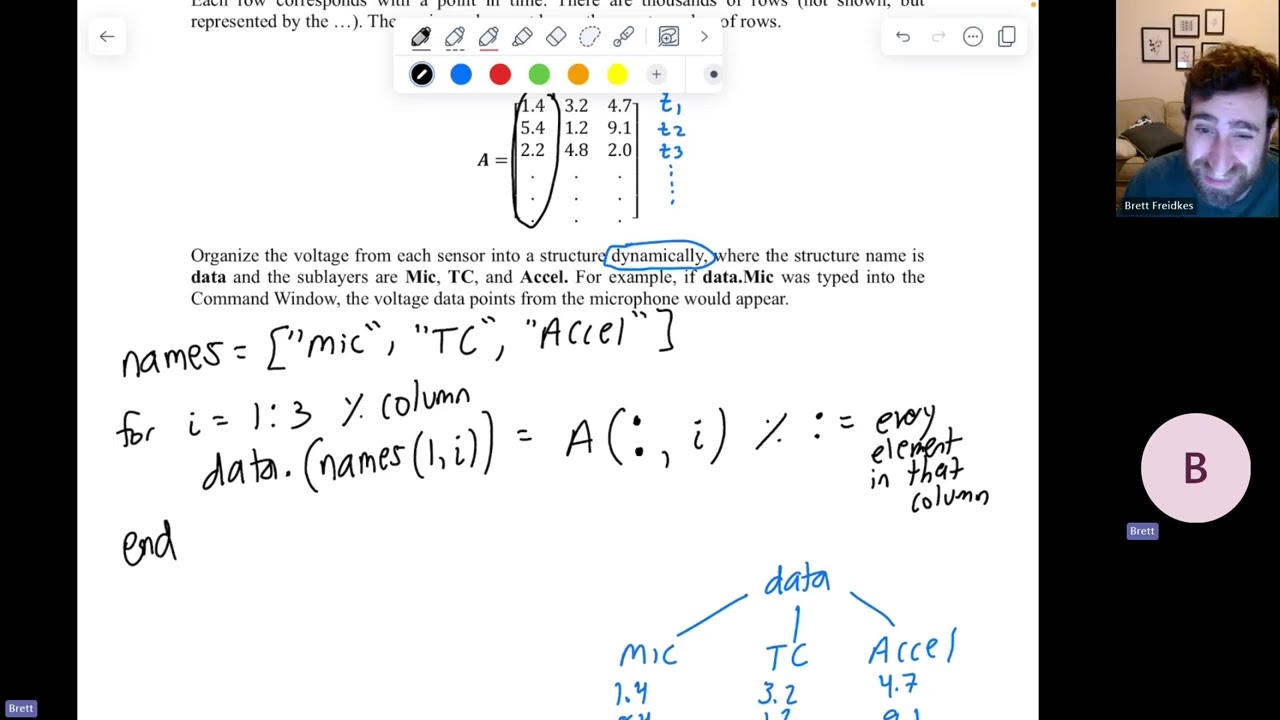 Each row corresponds with a point in time. There are thousands of rows (not shown, but
represented by the …). The
of rows.
1.4 3.2 4.7 t1
5.4 1.2 9.1 t2
A = 2.2 4.8 2.0 t3
Organize the voltage from each sensor into a structure dynamically, where the structure name is
data and the sublayers are Mic, TC, and Accel. For example, if data.Mic was typed into the
Command Window, the voltage data points from the microphone would appear.
names = ["Mic", "TC", "Accel"]
for i = 1:3 % column
data.(names(1,i)) = A(:, i) % : = every
element
in that
column
end
data
Mic TC Accel
1.4 3.2 4.7
Brett Freidkes
B
Brett
Brett